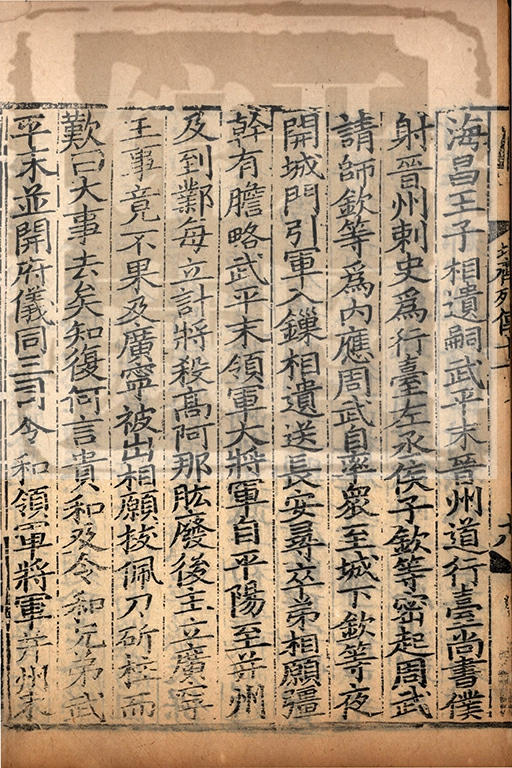 列傳十
海昌王子相遺嗣武平末晉州道行臺尚書僕
射晉州刺史爲行臺左丞侯子欽等密起周武
請師欽等爲内應周武自率衆至城下欽等夜
開城門引軍入鏁相遺送長安尋卒弟相願彊
幹有膽略武平末領軍大將軍自平陽至并州
及到鄴每立計將殺高阿那肱廢後主立廣寧
王事竟不果及廣寧被出相願拔佩刀斫柱而
歎曰大事去矣知復何言貴和及令和兄弟武
平末並開府儀同三司令和領軍將軍并州未